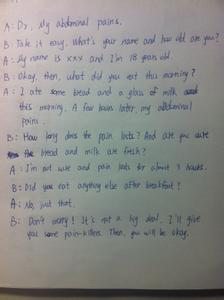 A: Dr, My abdominal pains.
B: Take it easy. What's your name and how old are you?
A: My name is xxx and I'm 18 years old.
B: Okay, then, what did you eat this morning?
A: I ate some bread and a glass of milk
this morning. A few hours later, my abdominal
pains.
B: How long does the pain lasts? And are you sure
the bread and milk are fresh?
A: I'm not sure and pain lasts for almost 3 hours.
B: Did you eat anything else after breakfast?
A: No, just that.
B: Don't worry! It's not a big deal. I'll give
you some pain-killers. Then, you will be okay.